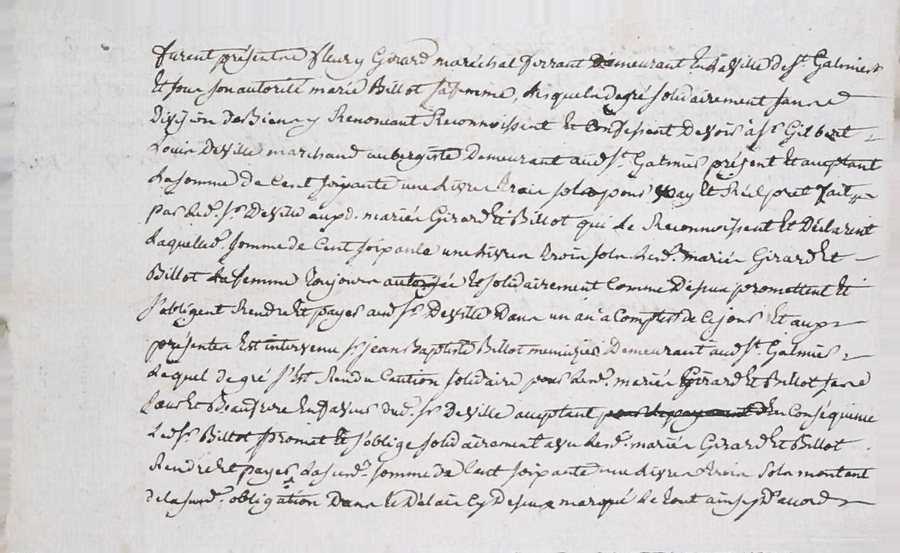 furent présents fleury Girard maréchal ferrant demeurant en la ville de st. Galmier
Et sous son autorité marie Billot sa femme, lesquels de gré solidairement sans
division de Biens y Renoncant Reconnoissent Et Confessent devoir à sr. Gilbert
Louis Deville marchand aubergiste Demeurant aud. st. Galmier présent Et acceptant
La somme de Cent soixante une Livres trois sols pour vray Et Réel pret fait
par led. sr. Deville auxd. mariés Girard Et Billot qui Le Reconnoissent Et Déclarent
Laquelle d. somme de Cent soixante une Livres trois sols Lesd. mariés Girard Et
Billot sa femme toujours autorisée Et solidairement Comme Dessus promettent Et
s'obligent Rendre Et payer aud. sr. Deville Dans un an à Compter de Ce jour Et aux
présentes Est intervenu sr. jean Baptiste Billot menuisier Demeurant aud. st. Galmier
Lequel de gré s'est Rendu Caution solidaire pour lesd. mariés Girard Et Billot
En faveur dud. sr. Deville acceptant En Conséquence
Led. sr. Billot promet Et s'oblige solidairement avec lesd. mariés Girard Et Billot
Rendre Et payer La susd. somme de Cent soixante une Livres trois sols montant
de la susd. obligation Dans Le Délai Cy Dessus marqué Le tout ainsy d'accord